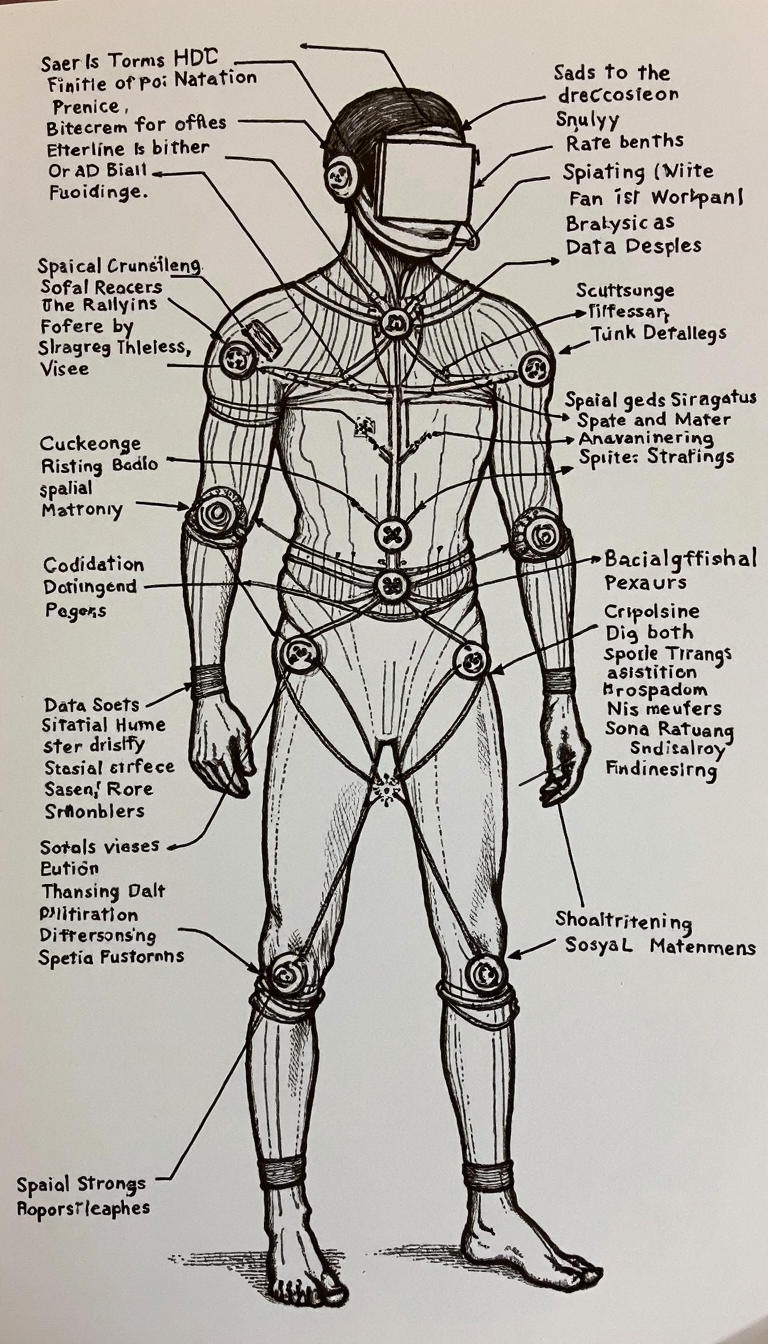 Saer ls Torms HDC
Finitie of poi Natation
Prenice,
Bitecrem for offles
Etterline ls bither
Or AD Biall
Fuoidinge.
Spaical Crunsileng
Sofal Reacers
The Rallyins
Fofere by
Slragreg Thleless,
Visee
Cuckeonge
Risting Badlo
spalial
Matronıy
Codidation
Dotingend
Pagens
Data Soets
Sitatial Hume
ster drislfy
Stasial strfece
Sasen! Rore
Srmonblers
Sotals vieses
Eution
Thansing Dalt
Pilitiration
Differsonsing
Spetia Fustornns
Spaial Strongs
Roporstleaphes
Sads to the
dreccosieon
Snulyy
Rate benths
Spiating (Wiite
Fan ist Workpanl
Bralysic as
Data Desples
Scuttsunge
Tiffessar,
Tunk Detallegs
Spaial geds Siragatus
Spate and Mater
Anavaninering
Spiite: Strafings
Bacialgffishal
Pexaurs
Cripolsine
Dig both
Sporle Tirangs
asistition
Hrospadom
Nis meufers
Sona Ratuang
Sndisalroy
Findinesirng
Shoaltritening
Sosyal Matenmens